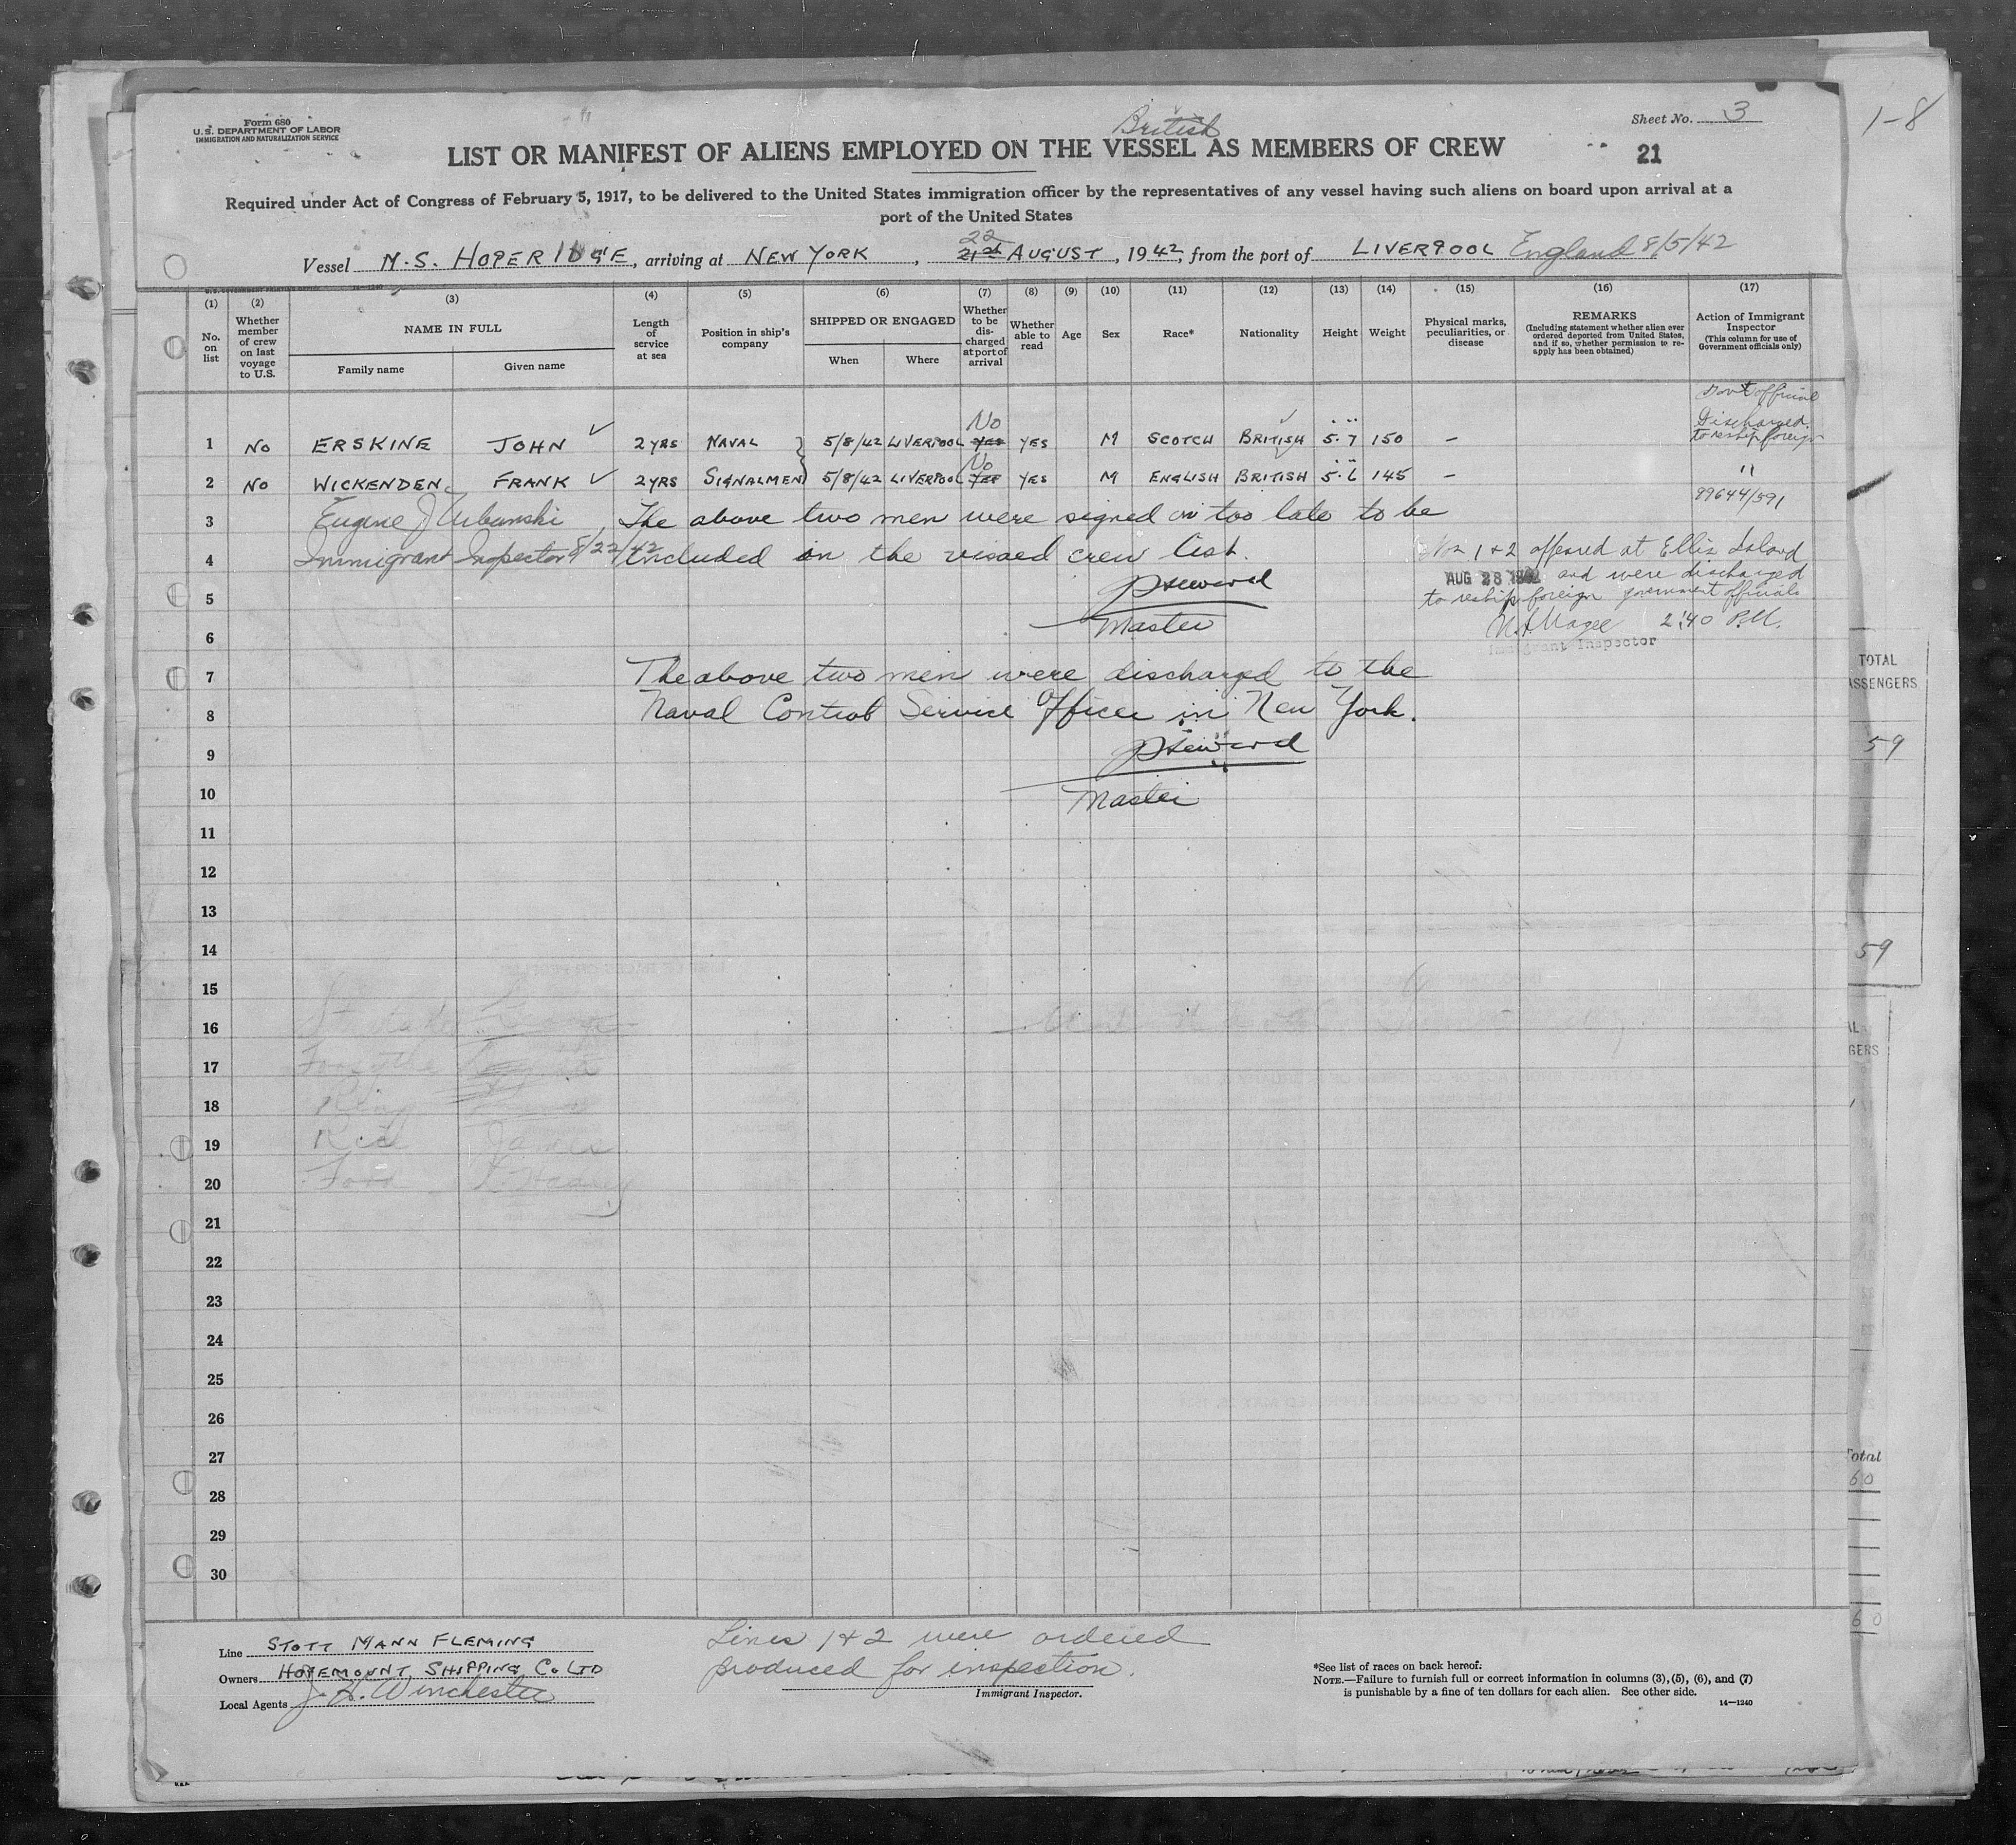 Form 680
U.S. DEPARTMENT OF LABOR
IMMIGRATION AND NATURALIZATION SERVICE
Sheet No. 3
1-8
British
LIST OR MANIFEST OF ALIENS EMPLOYED ON THE VESSEL AS MEMBERS OF CREW
21
Required under Act of Congress of February 5, 1917, to be delivered to the United States immigration officer by the representatives of any vessel having such aliens on board upon arrival at a
port of the United States
22
Vessel M.S. HOPERIDGE, arriving at NEW YORK, 21st AUGUST, 1942, from the port of LIVERPOOL England 8/5/42
(1) (2) (3) (4) (5) (6) (7) (8) (9) (10) (11) (12) (13) (14) (15) (16) (17)
No. on list
Whether member of crew on last voyage to U.S.
NAME IN FULL
Family name
Given name
Length of service at sea
Position in ship's company
SHIPPED OR ENGAGED
When
Where
Whether to be discharged at port of arrival
Whether able to read
Age
Sex
Race*
Nationality
Height
Weight
Physical marks, peculiarities, or disease
REMARKS
(Including statement whether alien ever ordered deported from United States, and if so, whether permission to reapply has been obtained)
Action of Immigrant Inspector
(This column for use of Government officials only)
Govt official
No Discharged
1 NO ERSKINE JOHN ✓ 2 YRS NAVAL 5/8/42 LIVERPOOL YES YES M SCOTCH BRITISH 5.7 150 – to reship foreign
No
2 NO WICKENDEN FRANK ✓ 2 YRS SIGNALMEN 5/8/42 LIVERPOOL YES YES M ENGLISH BRITISH 5.6 145 – "
99644/591
3 Eugene J Urbanski, The above two men were signed on too late to be
4 Immigrant Inspector 8/22/42 included in the visaed crew list.
Nos 1 & 2 appeared at Ellis Island
AUG 28 1942 and were discharged
to reship foreign government officials
2:40 P.M.
Immigrant Inspector
5
Master
6
7 The above two men were discharged to the
8 Naval Control Service Officer in New York.
9
10 Master
11
12
13
14
15
16
17 Forsythe
18 King
19 James
20 Ford
21
22
23
24
25
26
27
28
29
30
TOTAL
59
59
Total
60
60
Line STOTT MANN FLEMING
Owners HOPEMOUNT SHIPPING CO LTD
Local Agents J. H. Winchester
Lines 1 & 2 were ordered
produced for inspection.
Immigrant Inspector.
*See list of races on back hereof.
NOTE.—Failure to furnish full or correct information in columns (3), (5), (6), and (7)
is punishable by a fine of ten dollars for each alien. See other side.
14—1240